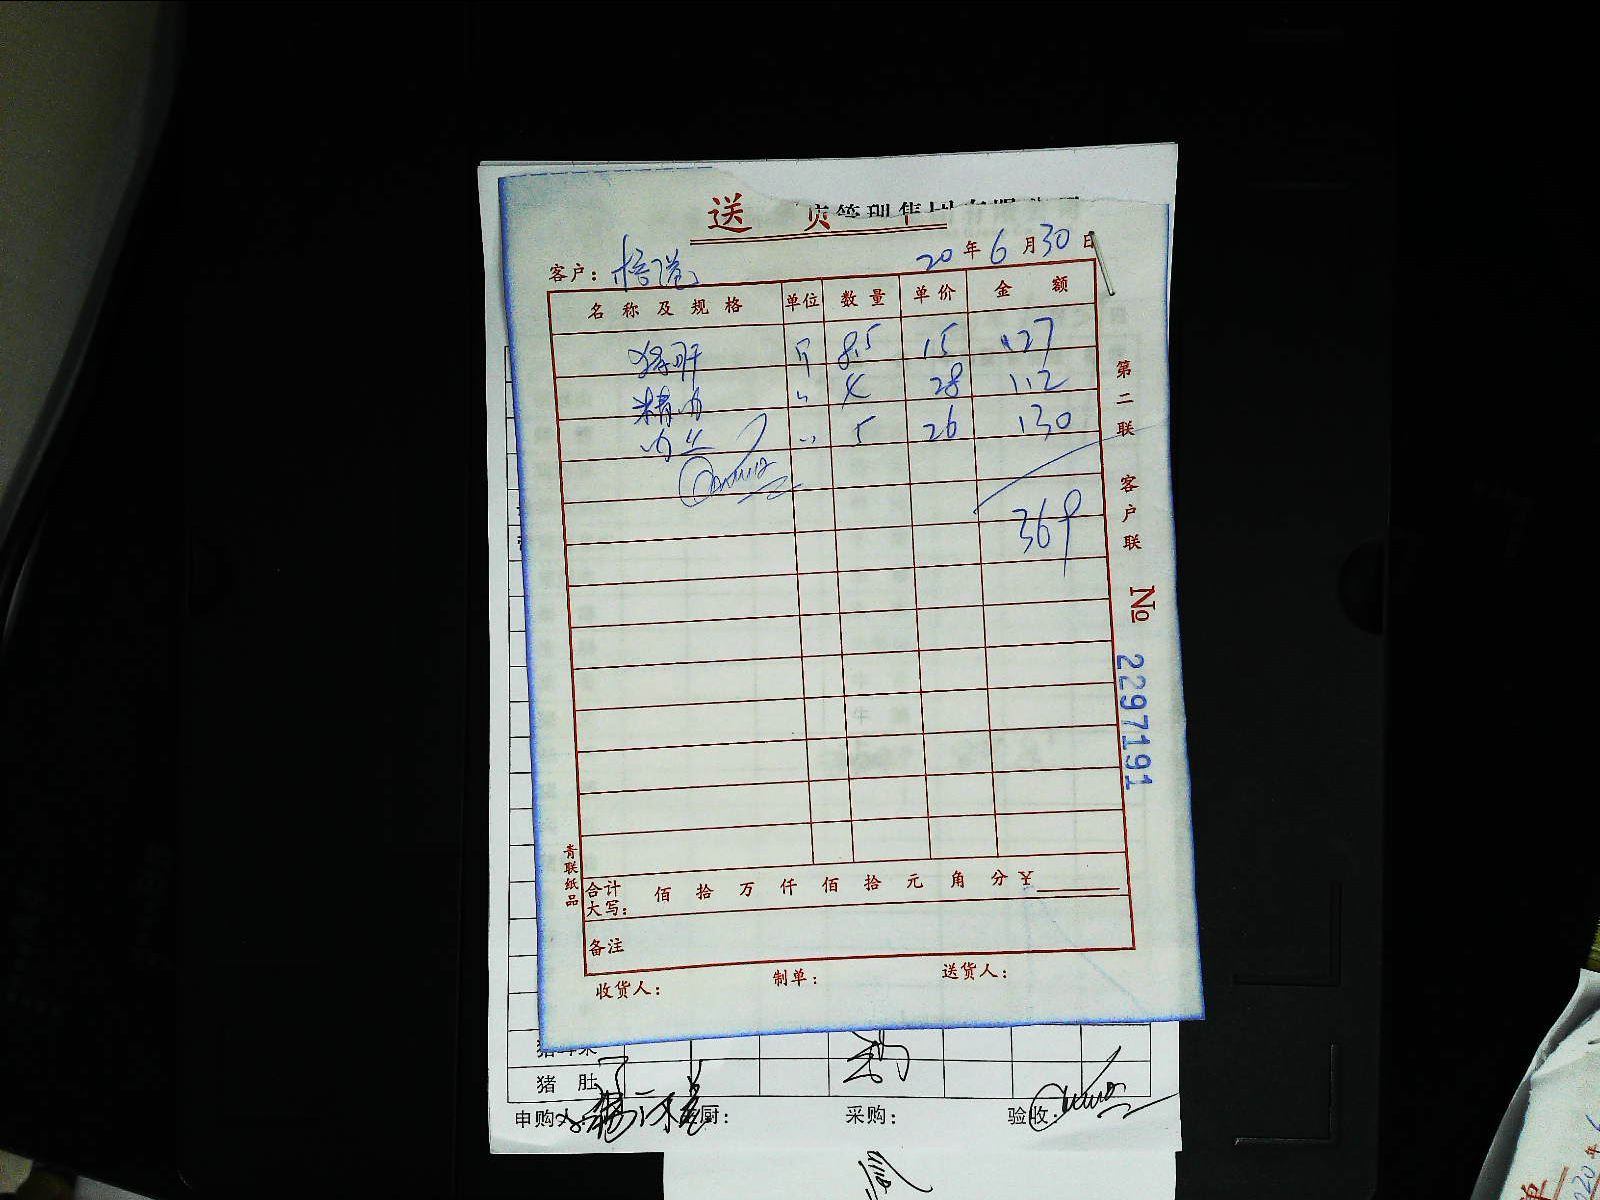 送 货 单
客户: 悟道 20年6月30日
名称及规格 单位 数量 单价 金额
猪肝 斤 8.5 15 127
精肉 〃 4 28 112
肉丝 〃 5 26 130
369
第二联 客户联
№ 2297191
青联纸品
合计大写: 佰 拾 万 仟 佰 拾 元 角 分 ¥
备注
收货人: 制单: 送货人:
猪肚
申购人: 主厨: 采购: 验收: